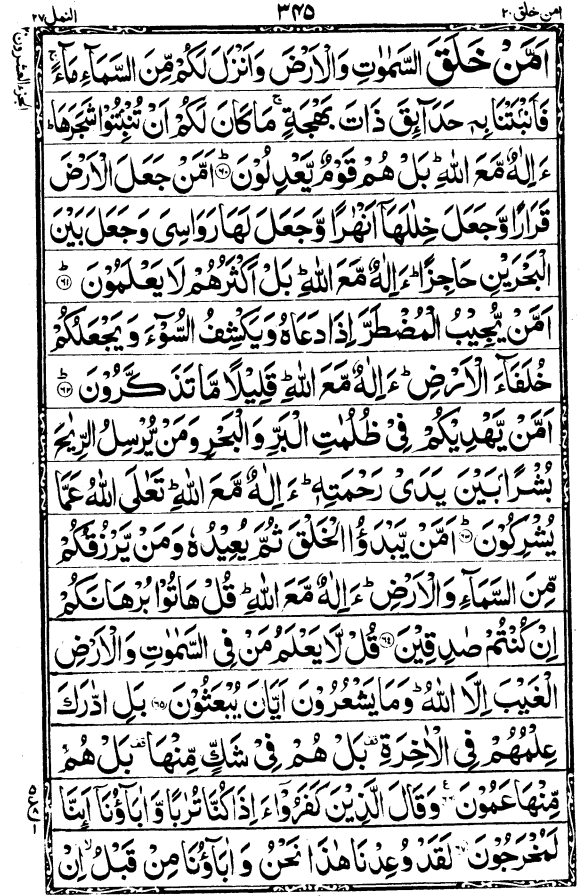 امن خلق ۲۰ ۳۴۵ النمل ۲۷
الجزء العشرون
اَمَّنْ خَلَقَ السَّمٰوٰتِ وَالْاَرْضَ وَاَنْزَلَ لَكُمْ مِّنَ السَّمَآءِ مَآءً ۚ
فَاَنْۢبَتْنَا بِهٖ حَدَآئِقَ ذَاتَ بَهْجَةٍ ۚ مَا كَانَ لَكُمْ اَنْ تُنْۢبِتُوْا شَجَرَهَا ؕ
ءَاِلٰهٌ مَّعَ اللّٰهِ ؕ بَلْ هُمْ قَوْمٌ يَّعْدِلُوْنَ ؕ۶۰ اَمَّنْ جَعَلَ الْاَرْضَ
قَرَارًا وَّجَعَلَ خِلٰلَهَاۤ اَنْهٰرًا وَّجَعَلَ لَهَا رَوَاسِىَ وَجَعَلَ بَيْنَ
الْبَحْرَيْنِ حَاجِزًا ؕ ءَاِلٰهٌ مَّعَ اللّٰهِ ؕ بَلْ اَكْثَرُهُمْ لَا يَعْلَمُوْنَ ؕ۶۱
اَمَّنْ يُّجِيْبُ الْمُضْطَرَّ اِذَا دَعَاهُ وَيَكْشِفُ السُّوْٓءَ وَيَجْعَلُكُمْ
خُلَفَآءَ الْاَرْضِ ؕ ءَاِلٰهٌ مَّعَ اللّٰهِ ؕ قَلِيْلًا مَّا تَذَكَّرُوْنَ ؕ۶۲
اَمَّنْ يَّهْدِيْكُمْ فِىْ ظُلُمٰتِ الْبَرِّ وَالْبَحْرِ وَمَنْ يُّرْسِلُ الرِّيٰحَ
بُشْرًۢا بَيْنَ يَدَىْ رَحْمَتِهٖ ؕ ءَاِلٰهٌ مَّعَ اللّٰهِ ؕ تَعٰلَى اللّٰهُ عَمَّا
يُشْرِكُوْنَ ؕ۶۳ اَمَّنْ يَّبْدَؤُا الْخَلْقَ ثُمَّ يُعِيْدُهٗ وَمَنْ يَّرْزُقُكُمْ
مِّنَ السَّمَآءِ وَالْاَرْضِ ؕ ءَاِلٰهٌ مَّعَ اللّٰهِ ؕ قُلْ هَاتُوْا بُرْهَانَكُمْ
اِنْ كُنْتُمْ صٰدِقِيْنَ ۶۴ قُلْ لَّا يَعْلَمُ مَنْ فِى السَّمٰوٰتِ وَالْاَرْضِ
الْغَيْبَ اِلَّا اللّٰهُ ؕ وَمَا يَشْعُرُوْنَ اَيَّانَ يُبْعَثُوْنَ ۶۵ بَلِ ادّٰرَكَ
عِلْمُهُمْ فِى الْاٰخِرَةِ ۟ بَلْ هُمْ فِىْ شَكٍّ مِّنْهَا ۟ بَلْ هُمْ
مِّنْهَا عَمُوْنَ وَقَالَ الَّذِيْنَ كَفَرُوْۤا ءَاِذَا كُنَّا تُرٰبًا وَّاٰبَآؤُنَاۤ اَئِنَّا
لَمُخْرَجُوْنَ لَقَدْ وُعِدْنَا هٰذَا نَحْنُ وَاٰبَآؤُنَا مِنْ قَبْلُ ۙ اِنْ